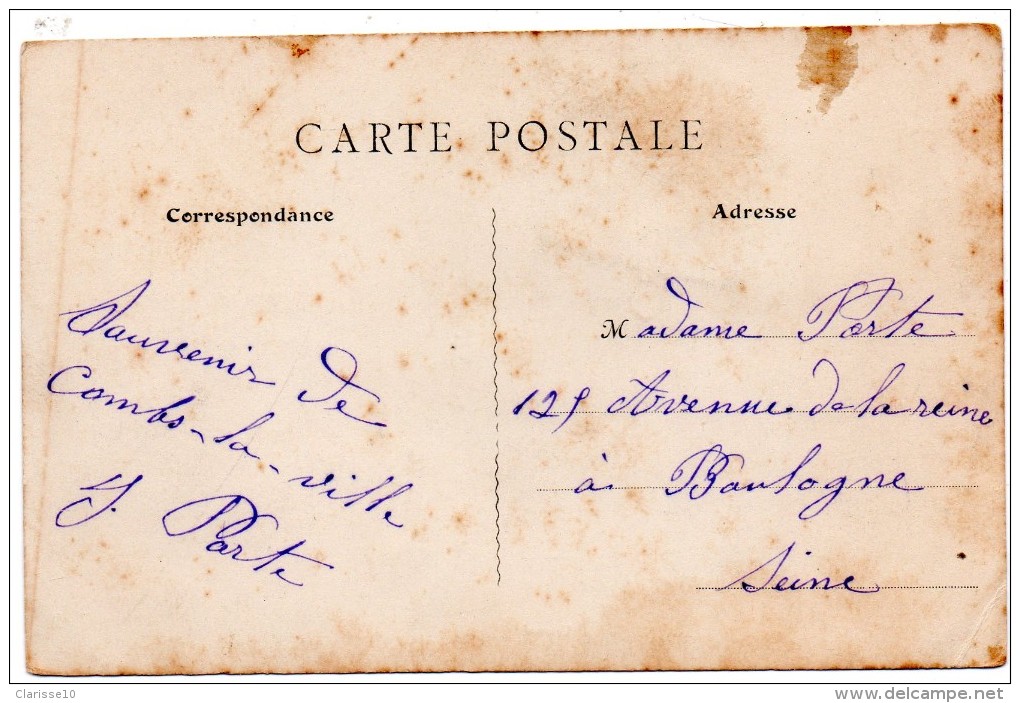 CARTE POSTALE
Correspondance
Adresse
Souvenir de
Combs-la-ville
Porte
Madame Porte
125 Avenue de la reine
à Boulogne
Seine
Clarisse10
www.delcampe.net